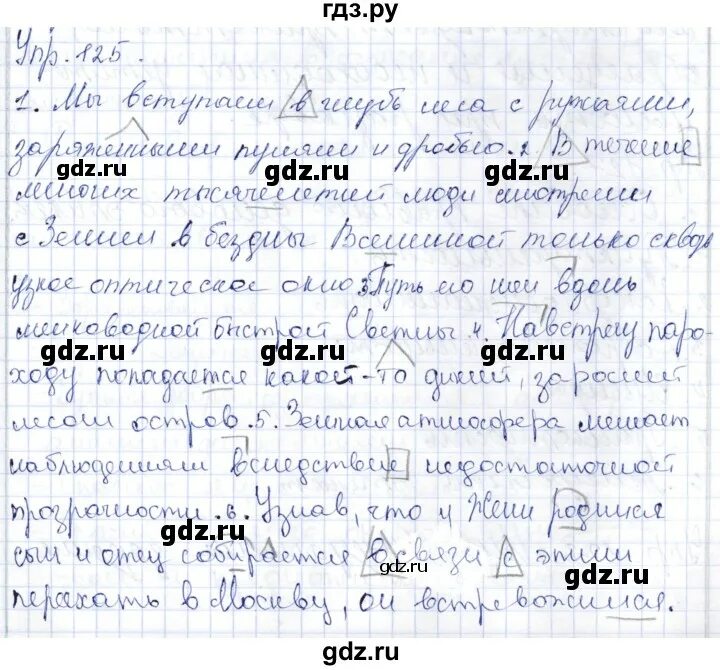 гдз.ру
Упр. 125.
1. Мы вступаем в глубь леса с ружьями,
заряженными пулями и дробью. 2. В течение
gdz.ru gdz.ru
многих тысячелетий люди смотрели
с Земли в бездны Вселенной только сквозь
узкое оптическое окно. 3. Путь по ней вдоль
мелководной быстрой Светлы. 4. Навстречу паро-
gdz.ru gdz.ru
ходу попадается какой-то дикий, заросший
лесом остров. 5. Земная атмосфера мешает
наблюдениям вследствие недостаточной
прозрачности. 6. Узнав, что у Жени родился
gdz.ru gdz.ru
сын и отец собирается в связи с этим
gdz.ru
переехать в Москву, он встревожился.
gdz.ru